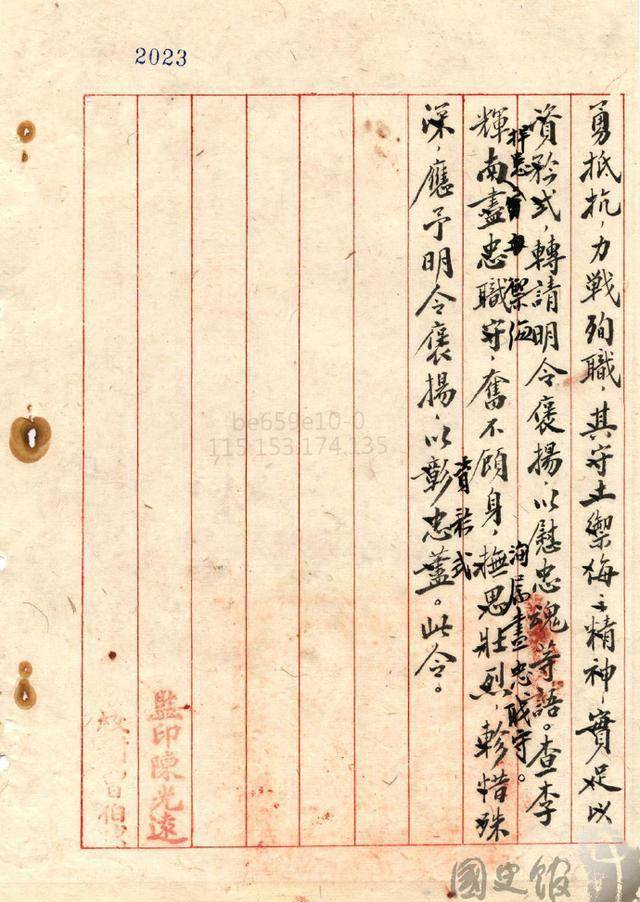 2023
勇抵抗，力戰殉職，其守土禦侮之精神，實足以
資矜式，轉請明令褒揚，以慰忠魂等語。查李
捍患禦侮
洵屬盡忠職守。
輝南盡忠職守，奮不顧身，撫思壯烈，軫惜殊
資矜式
深，應予明令褒揚，以彰忠藎。此令。
監印陳光遠
be659e10-0
115.153.174.135
國史館